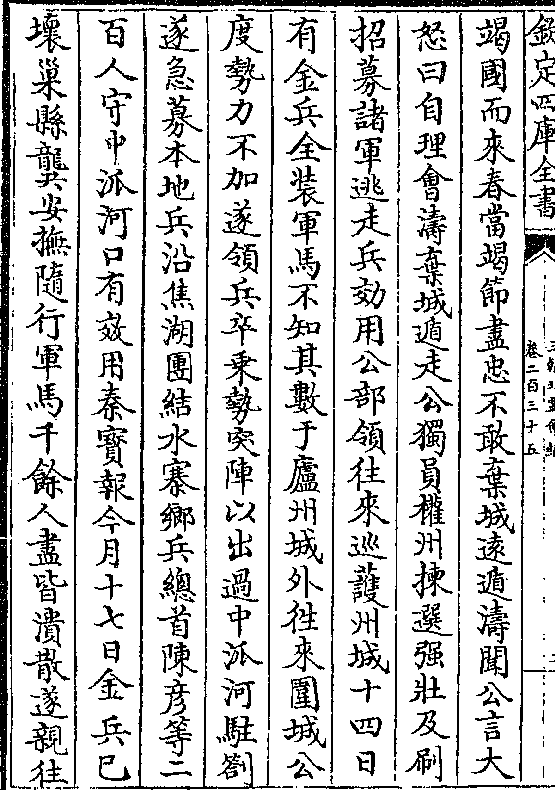 欽定四庫全書
卷二百三十五
竭國而來春當竭節盡忠不敢棄城遠遁濤聞公言大
怒曰自理會濤棄城遁走公獨員權州揀選强壯及刷
招募諸軍逃走兵効用公部領往來巡䕶州城十四日
有金兵全裝軍馬不知其數于廬州城外徃來圍城公
度勢力不加遂領兵卒乗勢突陣以出過中派河駐劄
遂急募本地兵沿焦湖團結水寨鄉兵總首陳彦等二
百人守中派河口有效用秦寶報今月十七日金兵已
壞巢縣龔安撫隨行軍馬千餘人盡皆潰散遂親往